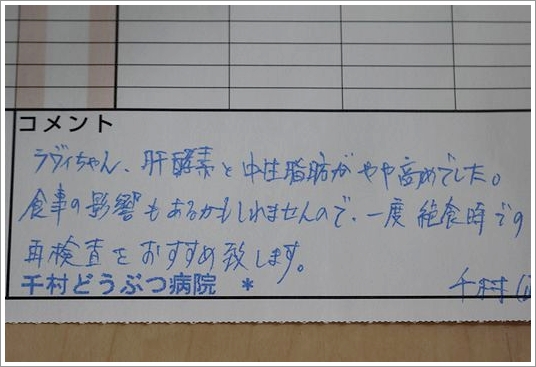 コメント
ラヴィちゃん、肝酵素と中性脂肪がやや高めでした。
食事の影響もあるかもしれませんので、一度 絶食時での
再検査をおすすめ致します。
千村どうぶつ病院 * 千村